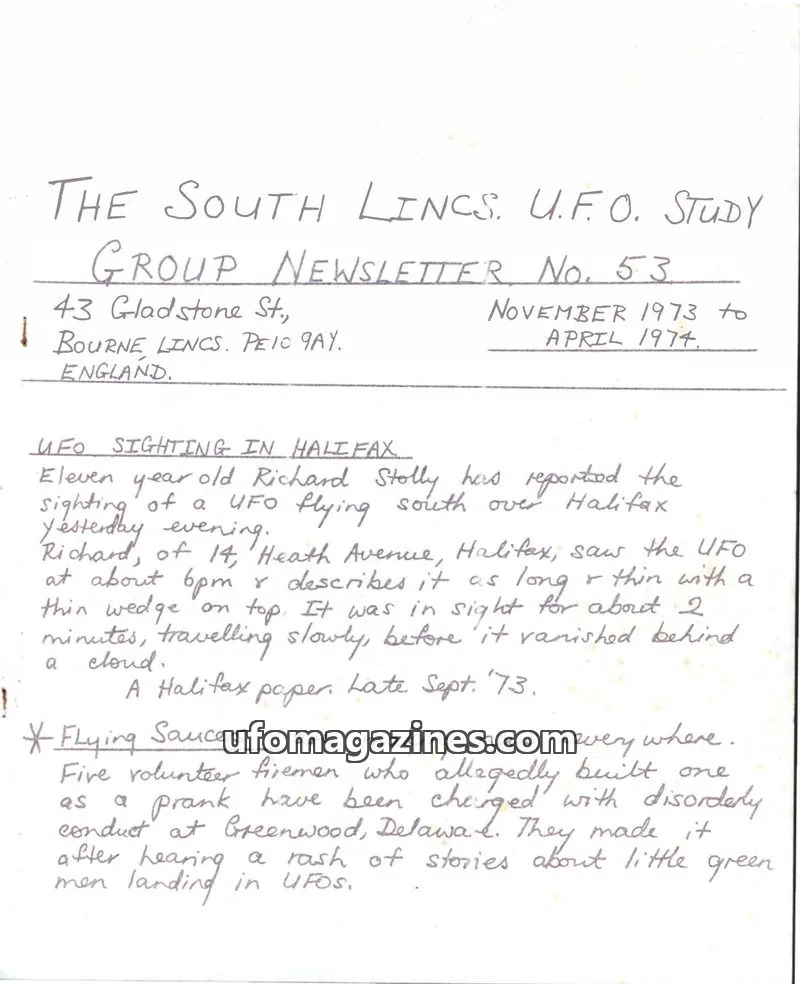 THE SOUTH LINCS. U.F.O. STUDY
GROUP NEWSLETTER No. 53
43 Gladstone St.,
BOURNE, LINCS. PE10 9AY.
ENGLAND.
NOVEMBER 1973 to
APRIL 1974.
UFO SIGHTING IN HALIFAX
Eleven year old Richard Stolly has reported the
sighting of a UFO flying south over Halifax
yesterday evening.
Richard, of 14, Heath Avenue, Halifax, saw the UFO
at about 6pm & describes it as long & thin with a
thin wedge on top. It was in sight for about 2
minutes, travelling slowly, before it vanished behind
a cloud.
A Halifax paper. Late Sept. '73.
* Flying Sauce every where.
ufomagazines.com
Five volunteer firemen who allegedly built one
as a prank have been charged with disorderly
conduct at Greenwood, Delaware. They made it
after hearing a rash of stories about little green
men landing in UFOs.